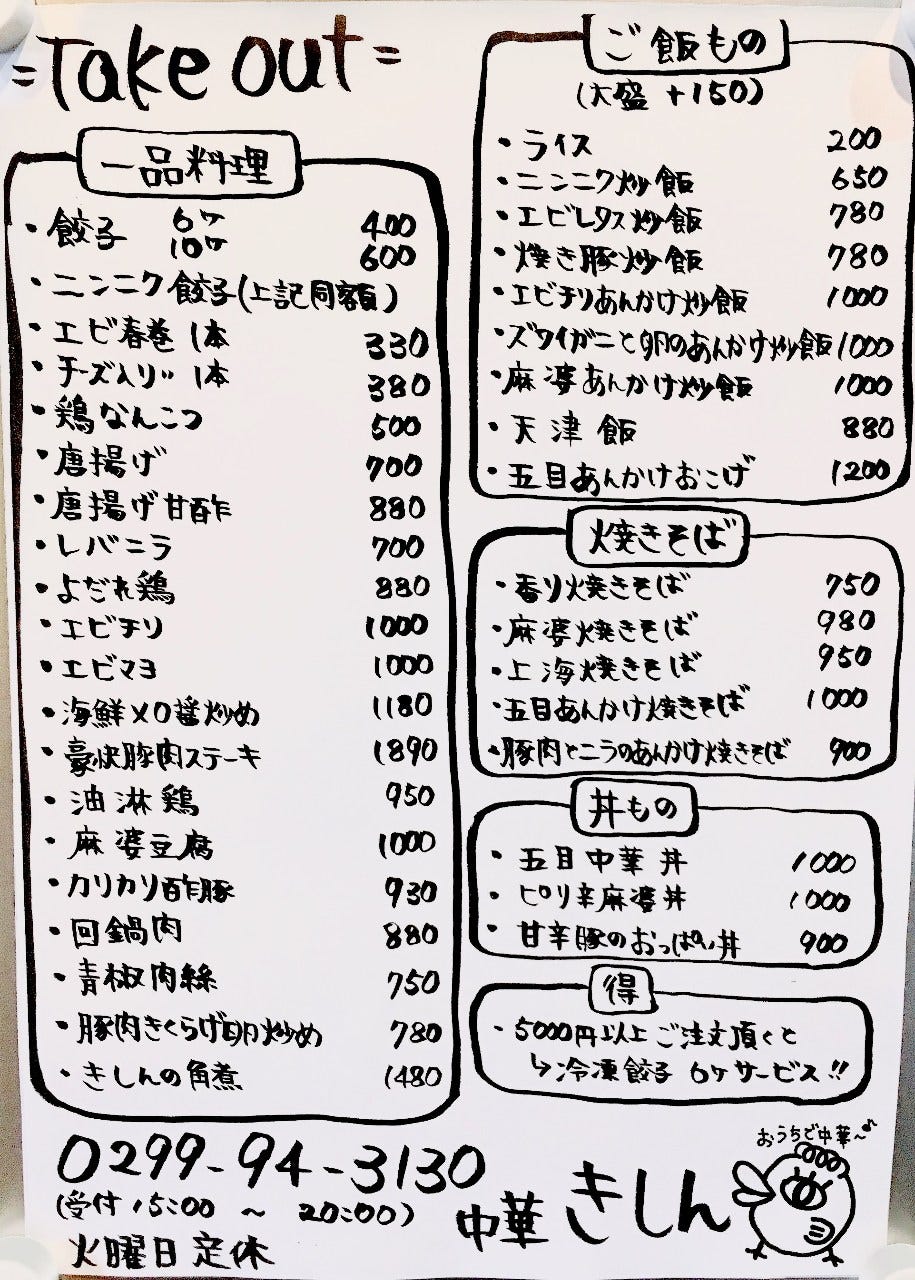 =Take out=
一品料理
・餃子 6ケ 400
10ケ 600
・ニンニク餃子(上記同額)
・エビ春巻 1本 330
・チーズ入り〃 1本 380
・鶏なんこつ 500
・唐揚げ 700
・唐揚げ甘酢 880
・レバニラ 700
・よだれ鶏 880
・エビチリ 1000
・エビマヨ 1000
・海鮮XO醤炒め 1180
・豪快豚肉ステーキ 1890
・油淋鶏 950
・麻婆豆腐 1000
・カリカリ酢豚 930
・回鍋肉 880
・青椒肉絲 750
・豚肉きくらげ卵炒め 780
・きしんの角煮 1480
ご飯もの
(大盛 +150)
・ライス 200
・ニンニク炒飯 650
・エビレタス炒飯 780
・焼き豚炒飯 780
・エビチリあんかけ炒飯 1000
・ズワイガニと卵のあんかけ炒飯 1000
・麻婆あんかけ炒飯 1000
・天津飯 880
・五目あんかけおこげ 1200
焼きそば
・香り焼きそば 750
・麻婆焼きそば 980
・上海焼きそば 950
・五目あんかけ焼きそば 1000
・豚肉とニラのあんかけ焼きそば 900
丼もの
・五目中華丼 1000
・ピリ辛麻婆丼 1000
・甘辛豚のおっぱい丼 900
得
・5000円以上ご注文頂くと
↳冷凍餃子 6ケサービス!!
おうちで中華〜♪
0299-94-3130
(受付 15:00 〜 20:00)
火曜日定休
中華 きしん